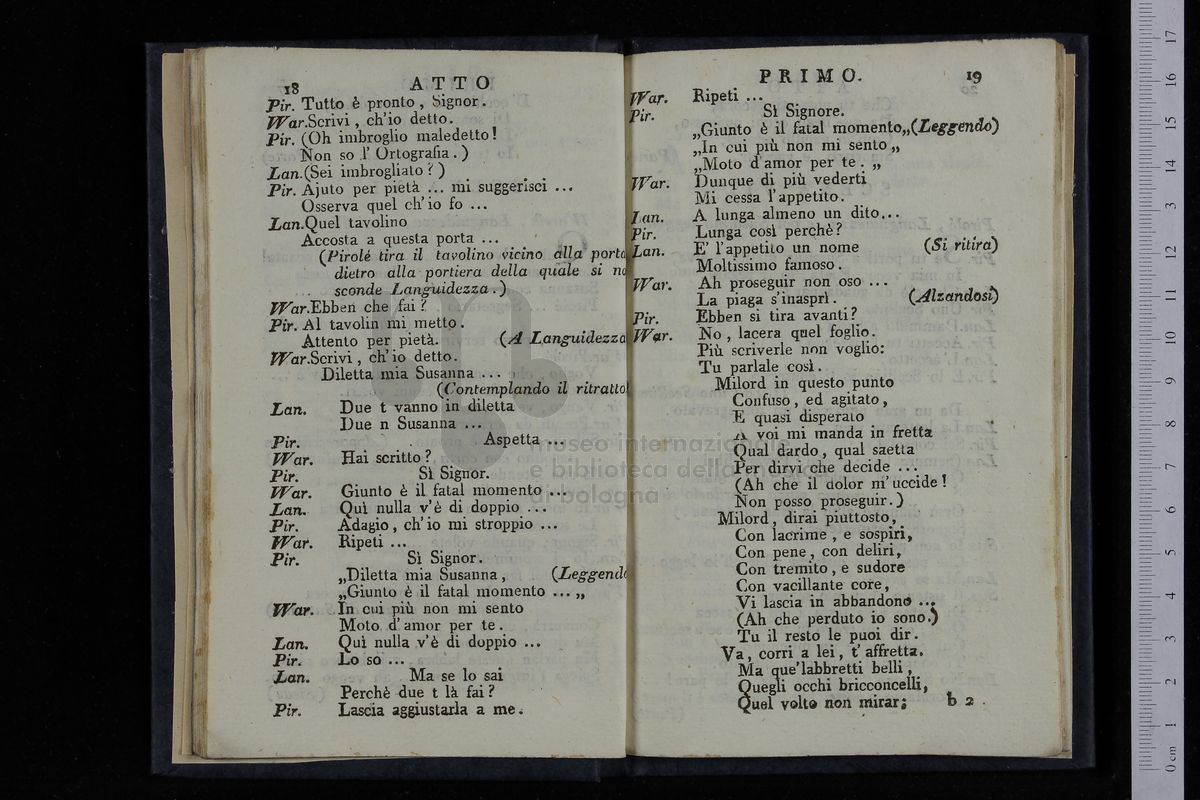 18 ATTO
Pir. Tutto è pronto, Signor.
War. Scrivi, ch'io detto.
Pir. (Oh imbroglio maledetto!
Non so l'Ortografia.)
Lan. (Sei imbrogliato?)
Pir. Ajuto per pietà ... mi suggerisci ...
Osserva quel ch'io fo ...
Lan. Quel tavolino
Accosta a questa porta ...
(Pirolé tira il tavolino vicino alla porta
dietro alla portiera della quale si na
sconde Languidezza.)
War. Ebben che fai?
Pir. Al tavolin mi metto.
Attento per pietà. (A Languidezza
War. Scrivi, ch'io detto.
Diletta mia Susanna ...
(Contemplando il ritratto
Lan. Due t vanno in diletta
Due n Susanna ...
Pir. Aspetta ...
War. Hai scritto?
Pir. Sì Signor.
War. Giunto è il fatal momento ...
Lan. Quì nulla v'è di doppio ...
Pir. Adagio, ch'io mi stroppio ...
War. Ripeti ...
Pir. Sì Signor.
„Diletta mia Susanna, (Leggendo
„Giunto è il fatal momento ... „
War. In cui più non mi sento
Moto d'amor per te.
Lan. Quì nulla v'è di doppio ...
Pir. Lo so ...
Lan. Ma se lo sai
Perchè due t là fai?
Pir. Lascia aggiustarla a me.
PRIMO. 19
War. Ripeti ...
Pir. Sì Signore.
„Giunto è il fatal momento„ (Leggendo)
„In cui più non mi sento„
„Moto d'amor per te. „
War. Dunque di più vederti
Mi cessa l'appetito.
Lan. A lunga almeno un dito...
Pir. Lunga così perchè?
Lan. E' l'appetito un nome (Si ritira)
Moltissimo famoso.
War. Ah proseguir non oso ...
La piaga s'inasprì. (Alzandosi)
Pir. Ebben si tira avanti?
War. No, lacera quel foglio.
Più scriverle non voglio:
Tu parlale così.
Milord in questo punto
Confuso, ed agitato,
E quasi disperato
A voi mi manda in fretta
Qual dardo, qual saetta
Per dirvi che decide ...
(Ah che il dolor m'uccide!
Non posso proseguir.)
Milord, dirai piuttosto,
Con lacrime, e sospiri,
Con pene, con deliri,
Con tremito, e sudore
Con vacillante core,
Vi lascia in abbandono ...
(Ah che perduto io sono.)
Tu il resto le puoi dir.
Va, corri a lei, t'affretta.
Ma que'labbretti belli,
Quegli occhi bricconcelli,
Quel volto non mirar; b 2.
museo internazionale
e biblioteca della
di bologna
0 cm 1 2 3 4 5 6 7 8 9 10 11 12 13 14 15 16 17